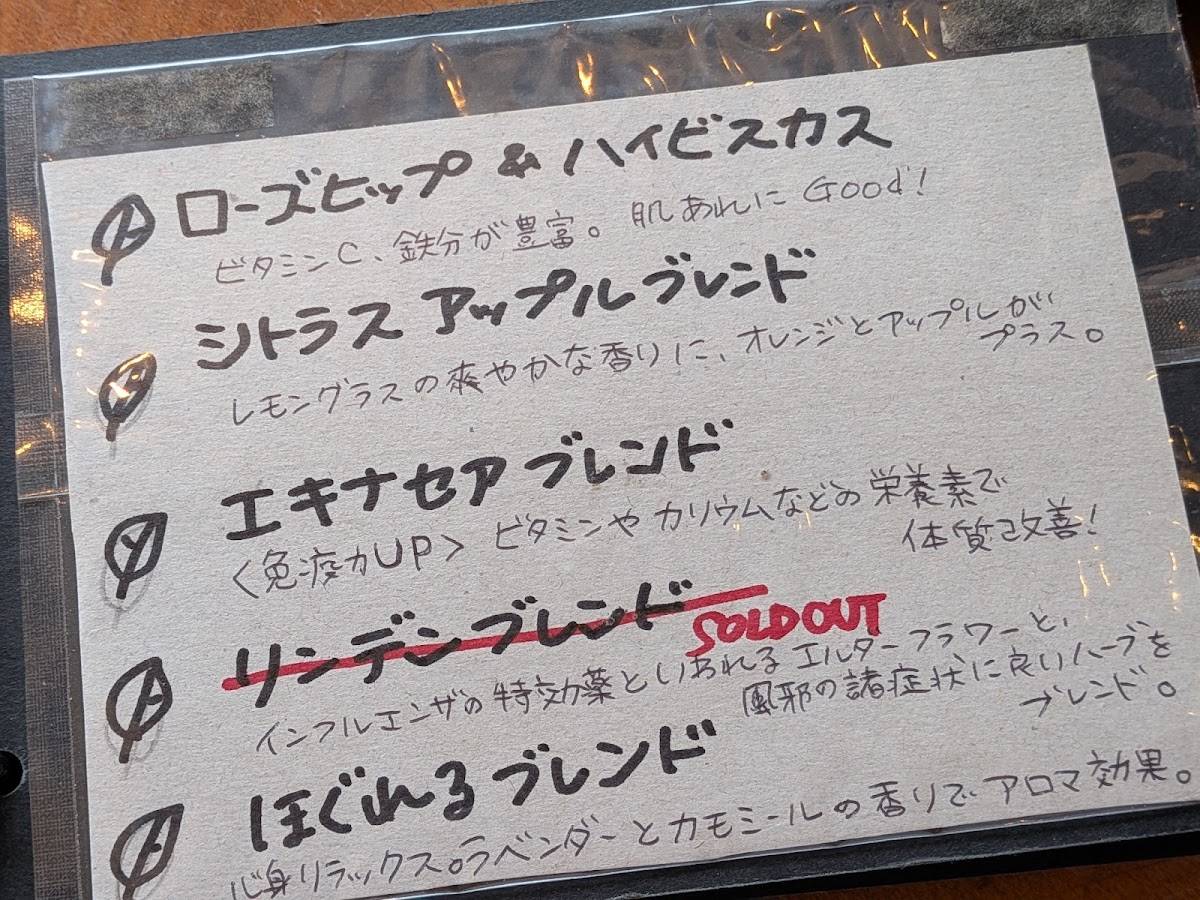 ローズヒップ & ハイビスカス
ビタミンC、鉄分が豊富。肌あれにGood!
シトラス アップルブレンド
レモングラスの爽やかな香りに、オレンジとアップルが
プラス。
エキナセア ブレンド
<免疫力UP> ビタミンや カリウムなどの栄養素で
体質改善!
リンデンブレンド
SOLD OUT
インフルエンザの特効薬といわれるエルダーフラワーと、
風邪の諸症状に良いハーブを
ブレンド。
ほぐれるブレンド
心身リラックス。ラベンダーとカモミールの香りでアロマ効果。